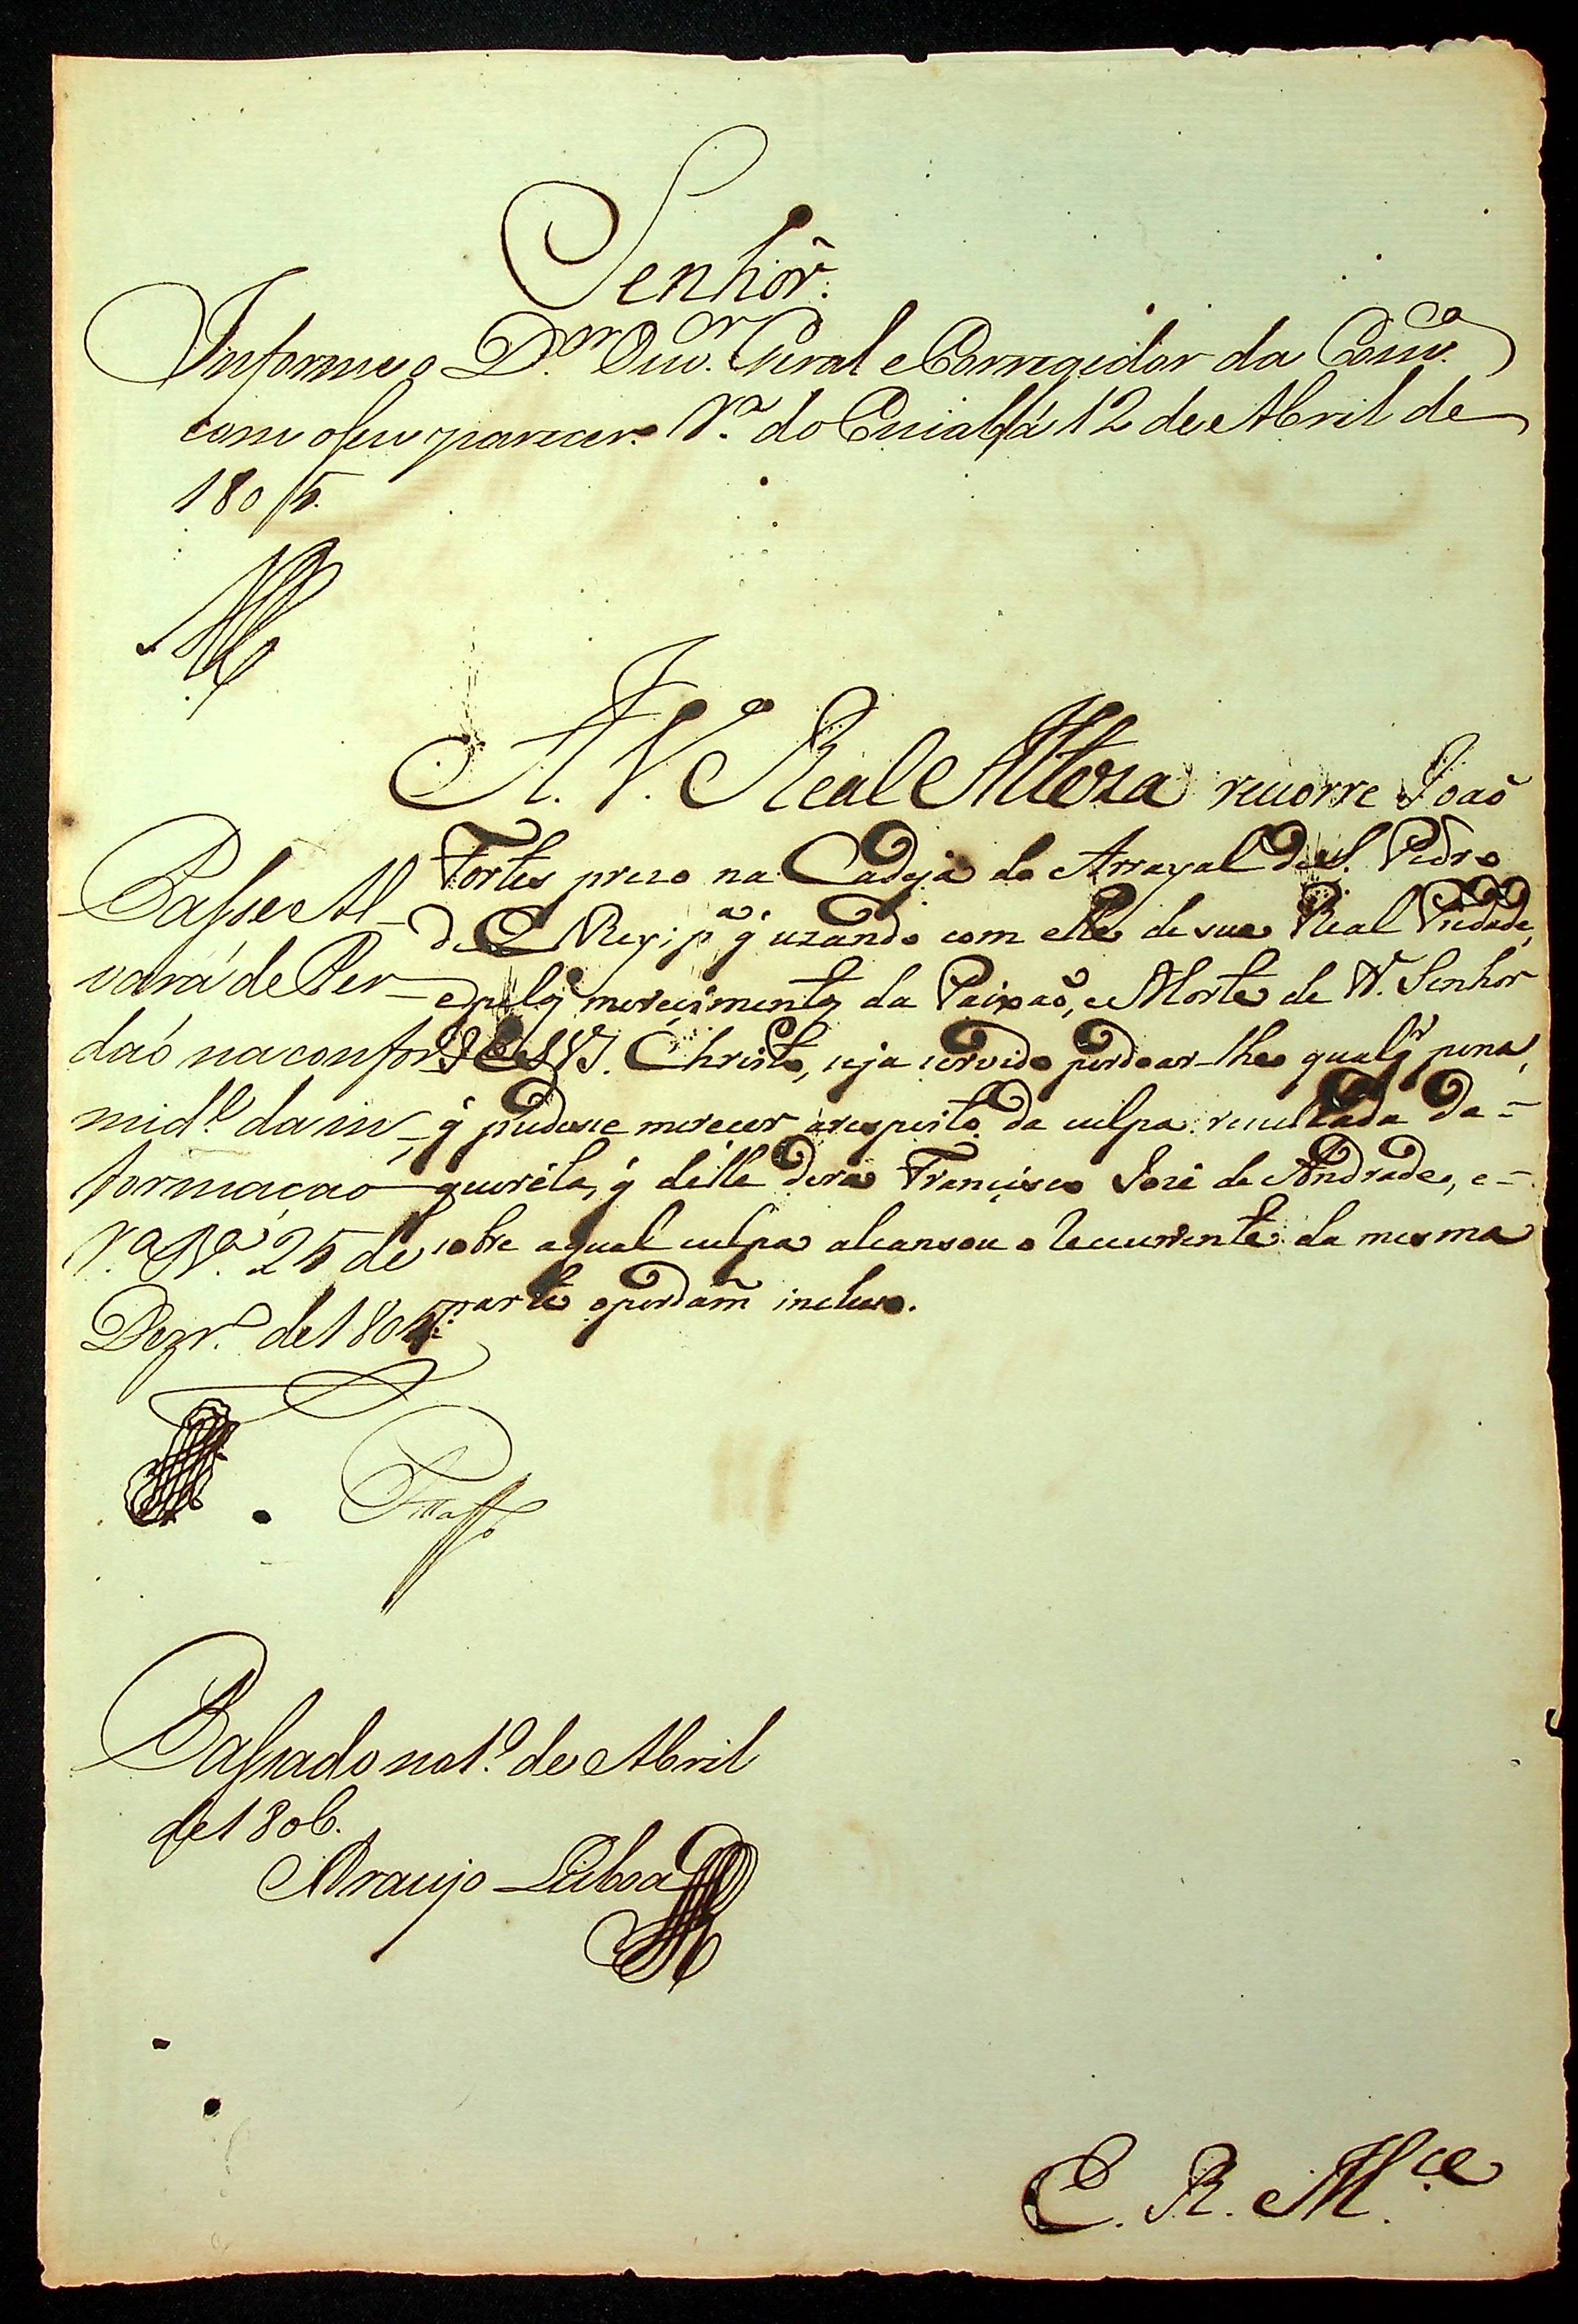 Senhor.
Informe o D.or Ouv.or Geral e Corregidor da Com.ca
com o seu parecer. V.a do Cuiabá 12 de Abril de
1805.
A V. Real Alteza recorre Joaõ
Fortes prezo na Cadeja do Arrayal de S. Pedro
d'El Rey; p.a q̃ uzando com elle de sua Real Piedade,
e pelos mereçimentos da Paixaõ, e Morte de N. Senhor
JESVS. Christo, seja servido perdoar-lhe qualq.r pena,
q̃ pudesse merecer arespeito da culpa rezultada da=
queréla, q̃ délle dera Françisco José de Andrade, e=
sobre aqual culpa alcansou o recurrente da mesma
parte operdam̃ incluso.
Passe Al-
vará de Per-
daó naconfor-
mid.e da in-
formaçaõ
V.a B.a 25 de
Dezr.o de 1805.
Passado no 1.º de Abril
de 1806.
Araujo Lisboa
E. R. M.ce